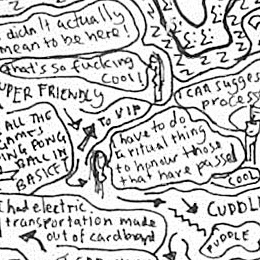 didn't actually
mean to be here!
that's so fucking
cool!
SUPER FRIENDLY
I CAN
process
ALL THE
PING PONG
BALL IN
BASKET
TO VIP
I have to do
a ritual thing
to honour those
that have passed
COOL
I had electric
transportation made
out of cardboard
CUDDLE
PUDDLE